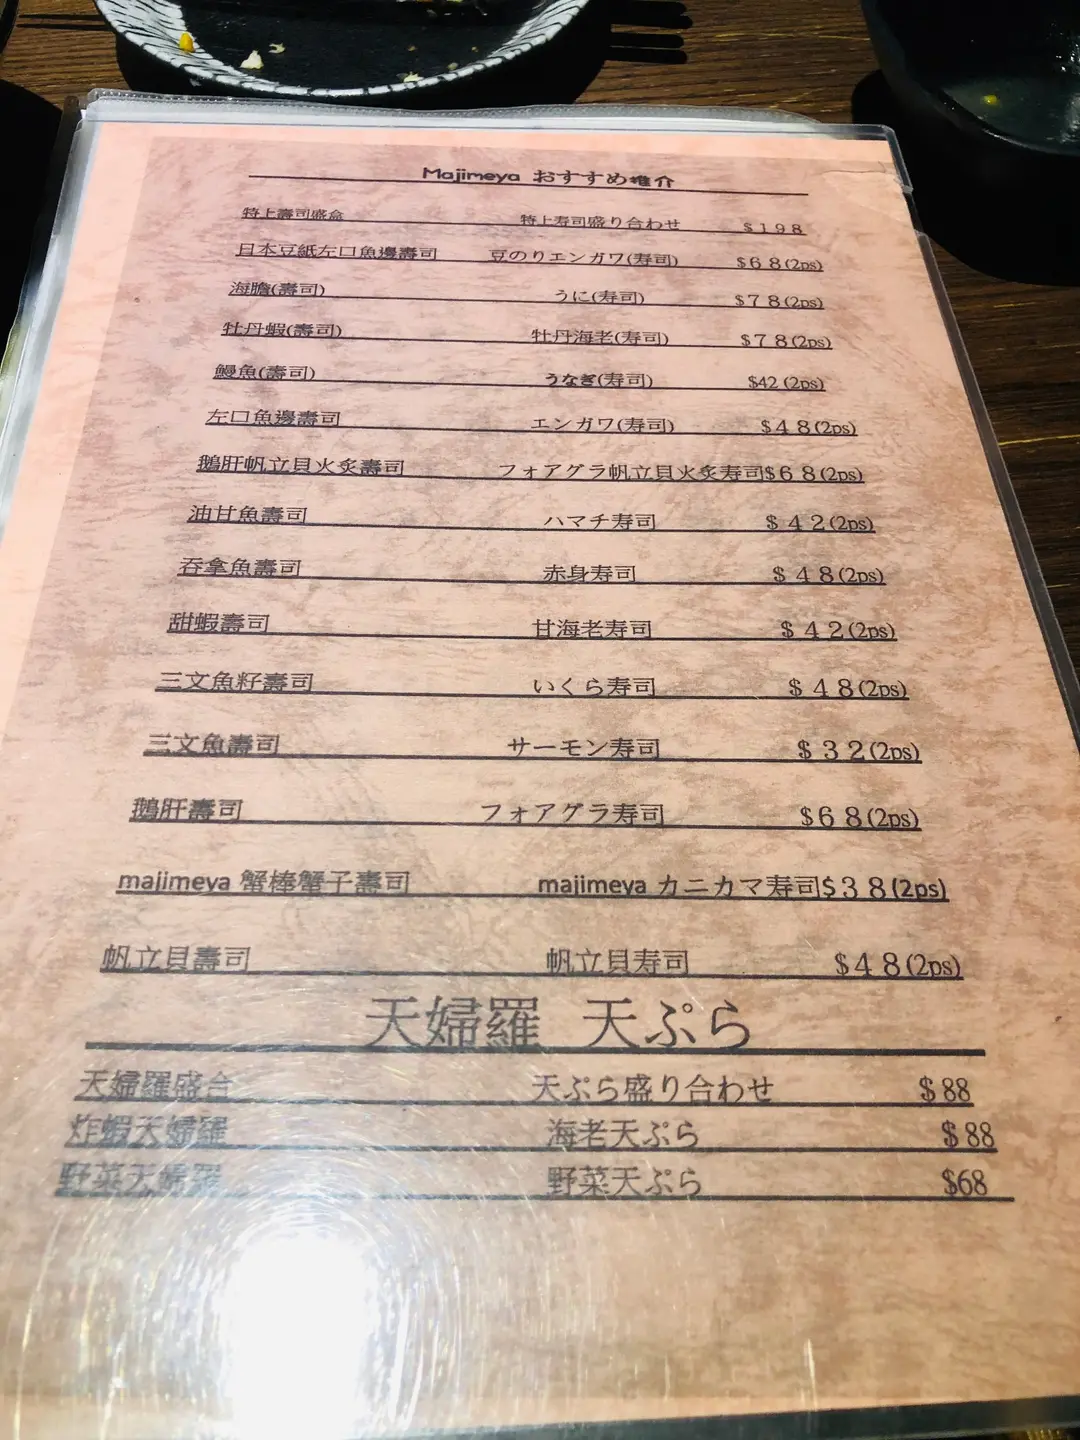 Majimeya おすすめ推介
特上壽司盛盒 特上寿司盛り合わせ $198
日本豆紙左口魚邊壽司 豆のりエンガワ(寿司) $68(2ps)
海膽(壽司) うに(寿司) $78(2ps)
牡丹蝦(壽司) 牡丹海老(寿司) $78(2ps)
鰻魚(壽司) うなぎ(寿司) $42 (2ps)
左口魚邊壽司 エンガワ(寿司) $48(2ps)
鵝肝帆立貝火炙壽司 フォアグラ帆立貝火炙寿司$68(2ps)
油甘魚壽司 ハマチ寿司 $42(2ps)
吞拿魚壽司 赤身寿司 $48(2ps)
甜蝦壽司 甘海老寿司 $42(2ps)
三文魚籽壽司 いくら寿司 $48(2ps)
三文魚壽司 サーモン寿司 $32(2ps)
鵝肝壽司 フォアグラ寿司 $68(2ps)
majimeya 蟹棒蟹子壽司 majimeya カニカマ寿司$38(2ps)
帆立貝壽司 帆立貝寿司 $48(2ps)
天婦羅 天ぷら
天婦羅盛合 天ぷら盛り合わせ $88
炸蝦天婦羅 海老天ぷら $88
野菜天婦羅 野菜天ぷら $68